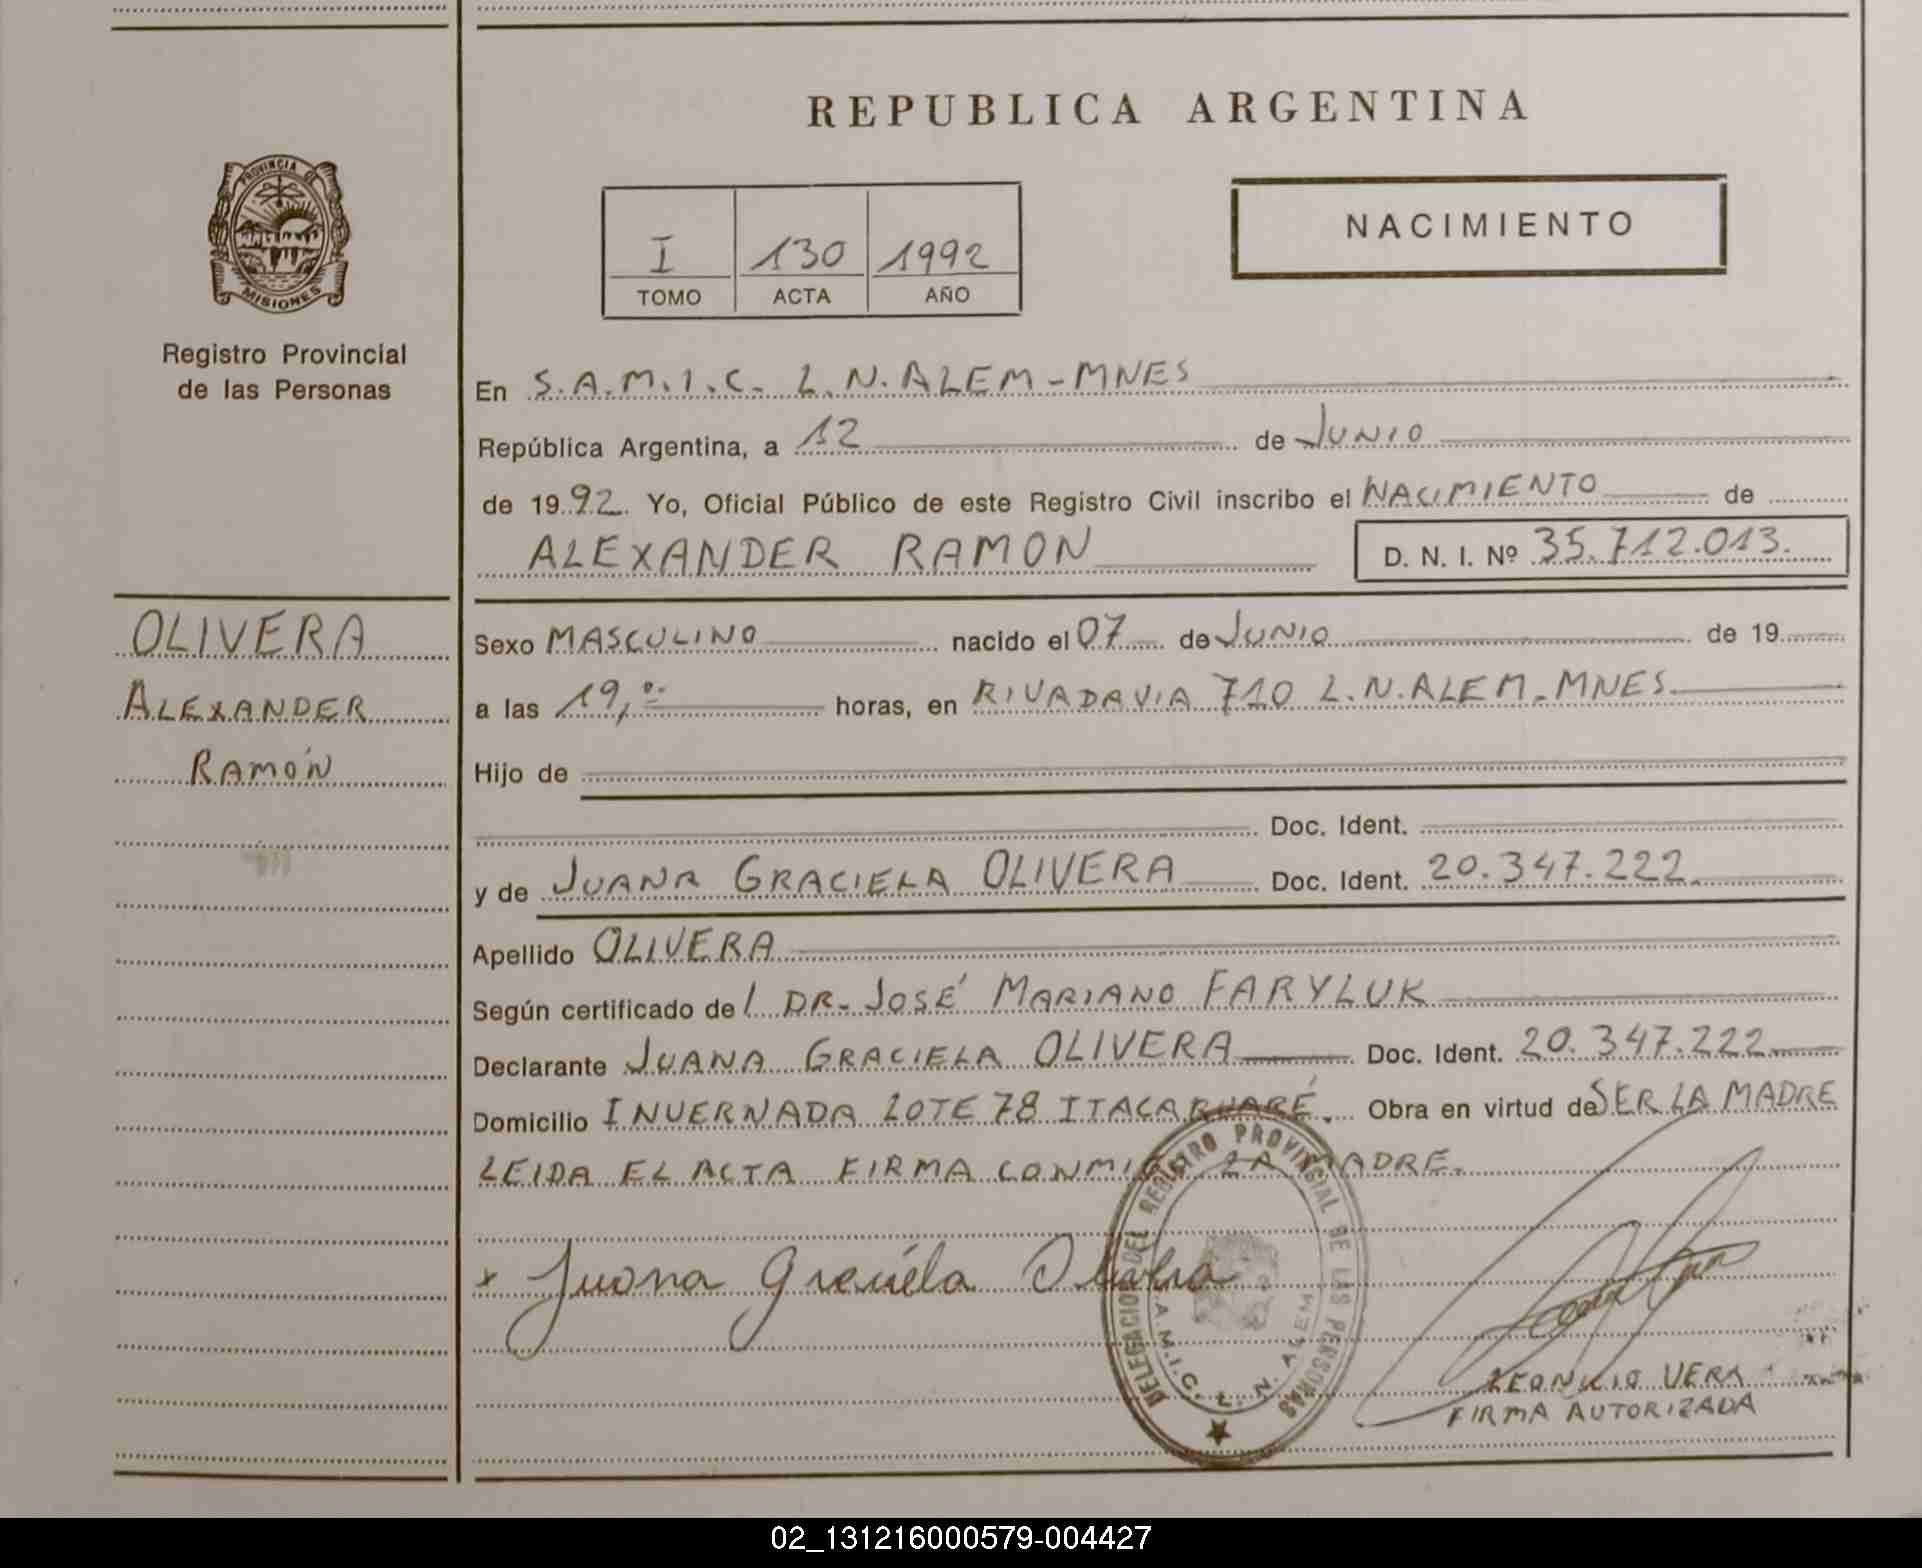 REPUBLICA ARGENTINA
PROVINCIA DE
MISIONES
Registro Provincial
de las Personas
I 130 1992
TOMO ACTA AÑO
NACIMIENTO
En S.A.M.I.C. L.N.ALEM-MNES
República Argentina, a 12 de JUNIO
de 1992. Yo, Oficial Público de este Registro Civil inscribo el NACIMIENTO de
ALEXANDER RAMON D. N. I. Nº 35.712.013.
OLIVERA
ALEXANDER
RAMÓN
Sexo MASCULINO nacido el 07 de JUNIO de 19
a las 19,00 horas, en RIVADAVIA 710 L.N.ALEM-MNES.
Hijo de
Doc. Ident.
y de JUANA GRACIELA OLIVERA Doc. Ident. 20.347.222.
Apellido OLIVERA
Según certificado de l DR. JOSÉ MARIANO FARYLUK
Declarante JUANA GRACIELA OLIVERA Doc. Ident. 20.347.222
Domicilio INVERNADA LOTE 78 ITACARUARÉ. Obra en virtud de SER LA MADRE
LEIDA EL ACTA FIRMA CONMIGO LA MADRE.
x Juana Graciela Olivera
DELEGACION DEL REGISTRO PROVINCIAL DE LAS PERSONAS
S.A.M.I.C. L. N. ALEM
LEONICIO VERA
FIRMA AUTORIZADA
02_131216000579-004427